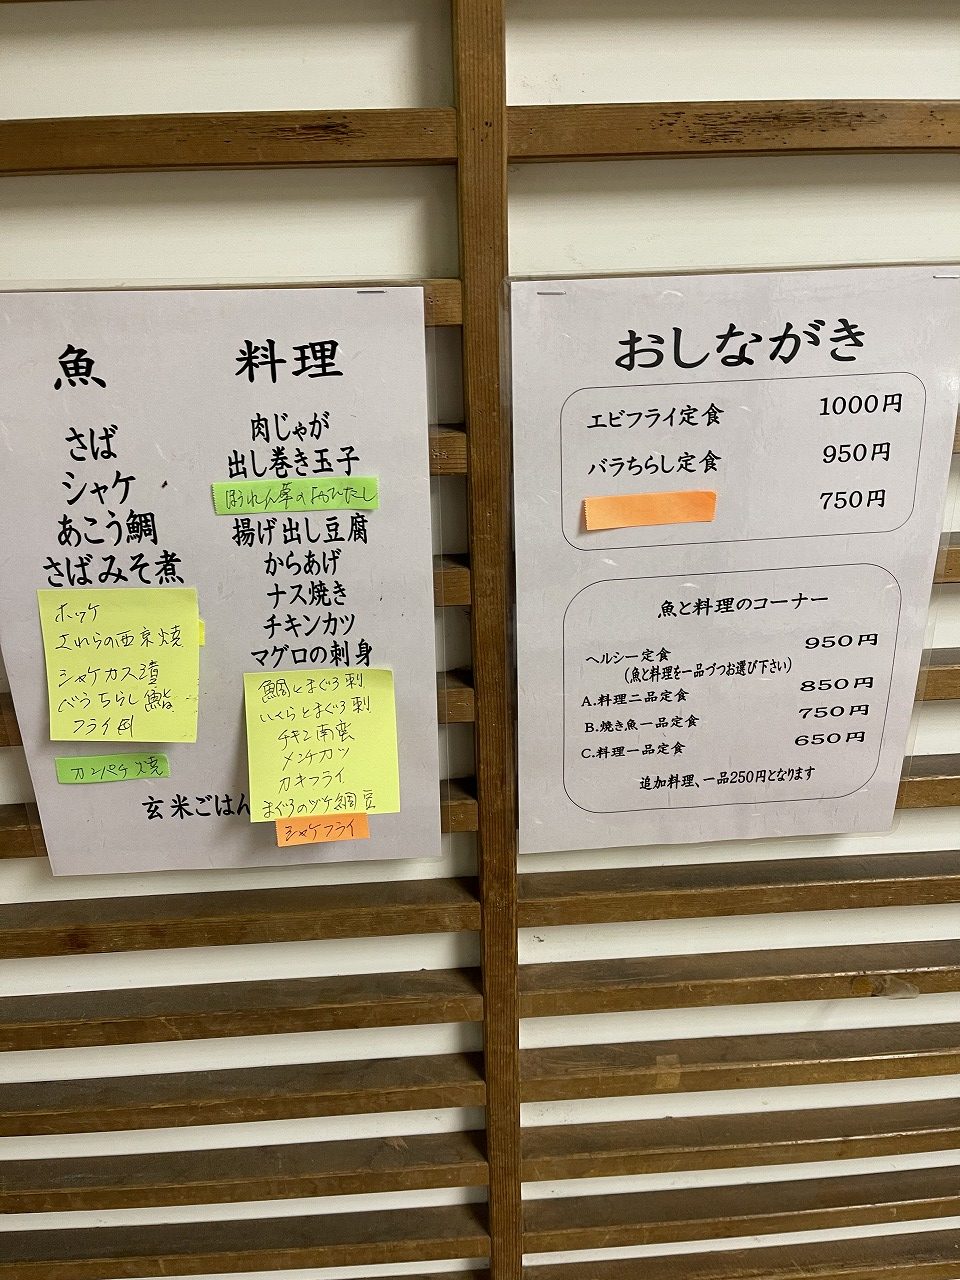 魚
さば
シャケ
あこう鯛
さばみそ煮
ホッケ
さわらの西京焼
シャケカス漬
バラちらし鮨
フライ
カンパチ焼
料理
肉じゃが
出し巻き玉子
ほうれん草のおひたし
揚げ出し豆腐
からあげ
ナス焼き
チキンカツ
マグロの刺身
鯛とまぐろ刺
いくらとまぐろ刺
チキン南蛮
メンチカツ
カキフライ
まぐろのヅケ
シャケフライ
玄米ごはん
おしながき
エビフライ定食 1000円
バラちらし定食 950円
750円
魚と料理のコーナー
ヘルシー定食 950円
(魚と料理を一品づつお選び下さい)
A.料理二品定食 850円
B.焼き魚一品定食 750円
C.料理一品定食 650円
追加料理、一品250円となります